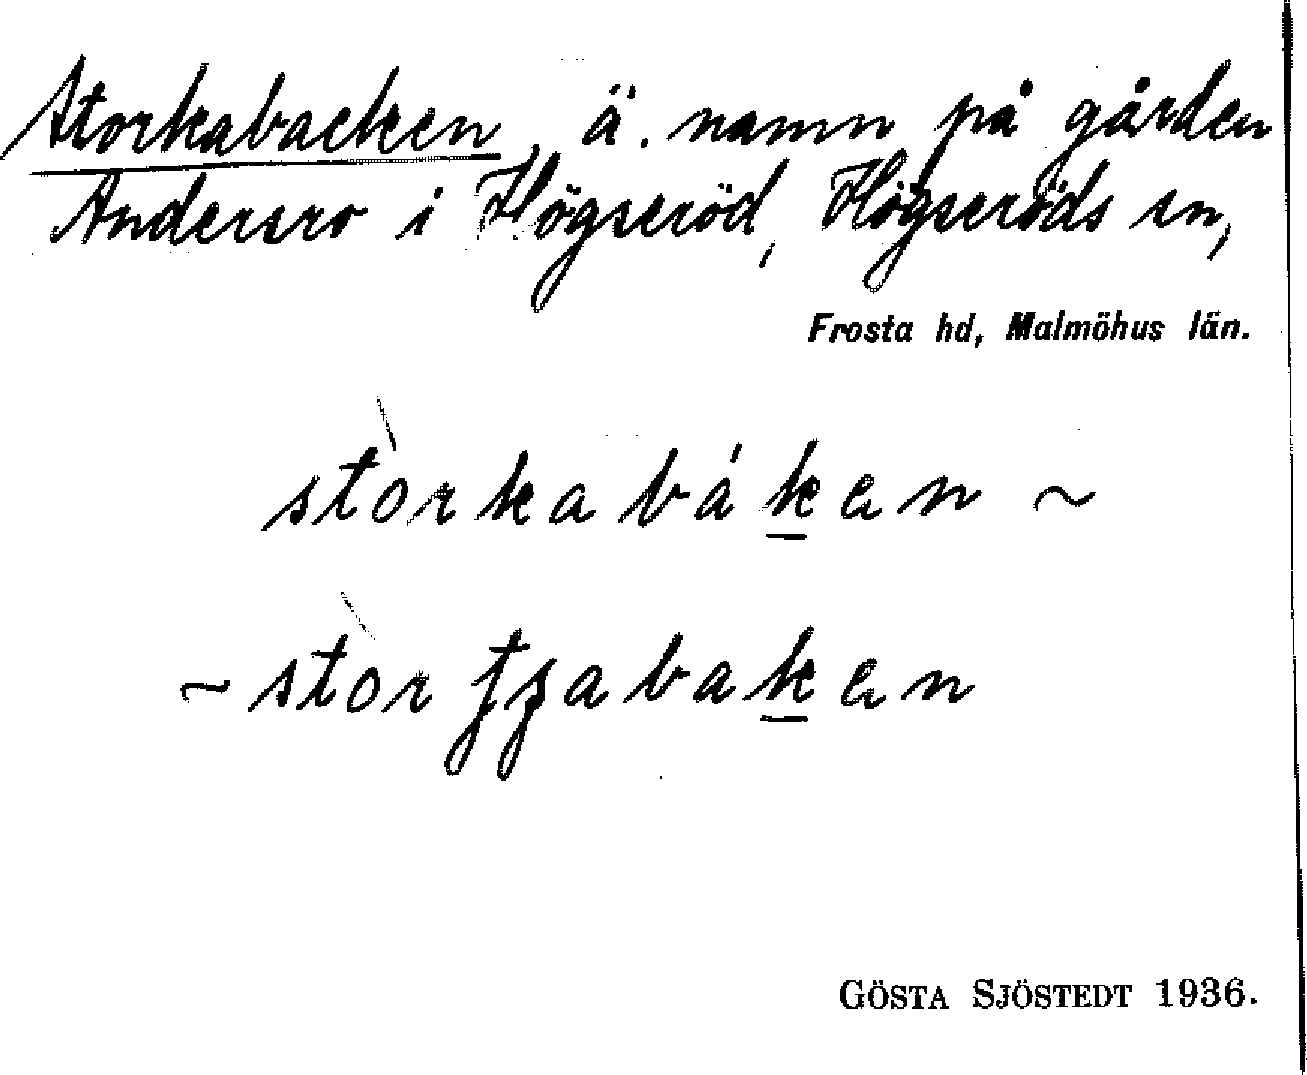 Storkabacken, ä. namn på gården
Andersro i Högseröd, Högseröds sn,
Frosta hd, Malmöhus län.
stòrkabáken ~
~ stòrtʒabaken
GÖSTA SJÖSTEDT 1936.